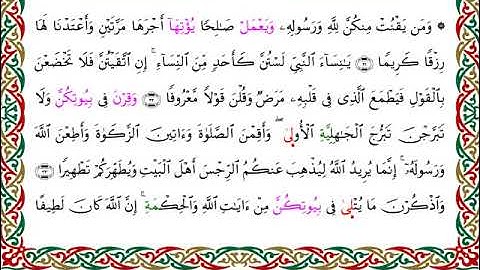 ۞ وَمَن يَقْنُتْ مِنكُنَّ لِلَّهِ وَرَسُولِهِۦ وَيَعْمَلْ صَٰلِحًا يُؤْتِهَآ أَجْرَهَا مَرَّتَيْنِ وَأَعْتَدْنَا لَهَا
رِزْقًا كَرِيمًا ٣١ يَٰنِسَآءَ ٱلنَّبِيِّ لَسْتُنَّ كَأَحَدٍ مِّنَ ٱلنِّسَآءِ ۚ إِنِ ٱتَّقَيْتُنَّ فَلَا تَخْضَعْنَ
بِٱلْقَوْلِ فَيَطْمَعَ ٱلَّذِى فِى قَلْبِهِۦ مَرَضٌ وَقُلْنَ قَوْلًا مَّعْرُوفًا ٣٢ وَقِرْنَ فِى بِيُوتِكُنَّ وَلَا
تَبَرَّجْنَ تَبَرُّجَ ٱلْجَٰهِلِيَّةِ ٱلْأُولَىٰ ۖ وَأَقِمْنَ ٱلصَّلَوٰةَ وَءَاتِينَ ٱلزَّكَوٰةَ وَأَطِعْنَ ٱللَّهَ
وَرَسُولَهُۥٓ ۚ إِنَّمَا يُرِيدُ ٱللَّهُ لِيُذْهِبَ عَنكُمُ ٱلرِّجْسَ أَهْلَ ٱلْبَيْتِ وَيُطَهِّرَكُمْ تَطْهِيرًا ٣٣
وَٱذْكُرْنَ مَا يُتْلَىٰ فِى بِيُوتِكُنَّ مِنْ ءَايَٰتِ ٱللَّهِ وَٱلْحِكْمَةِ ۚ إِنَّ ٱللَّهَ كَانَ لَطِيفًا